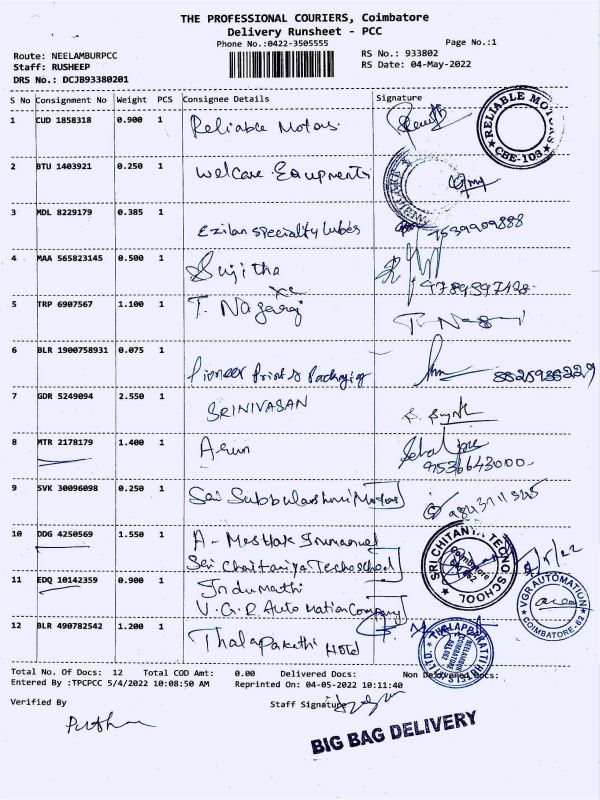 THE PROFESSIONAL COURIERS, Coimbatore
Delivery Runsheet - PCC
Phone No.:0422-3505555
Page No.:1
Route: NEELAMBURPCC
RS No.: 933802
Staff: RUSHEEP
RS Date: 04-May-2022
DRS No.: DCJB93380201
S No Consignment No Weight PCS Consignee Details Signature
1 CUD 1858318 0.900 1 Reliable Motors.
RELIABLE MOTORS CBE-103
2 BTU 1403921 0.250 1 Welcare Equipments
3 MDL 8229179 0.385 1 Ezilan speciality lubes 7539909888
4 MAA 565823145 0.500 1 Sujitha
5 TRP 6907567 1.100 1 T. Nagaraj
6 BLR 1900758931 0.075 1 Pioneer Prints Packaging 8825938229
7 GDR 5249094 2.550 1 SRINIVASAN
8 MTR 2178179 1.400 1 Arun
9536643000
9 SVK 30096098 0.250 1 Sai Subbulakshmi Motors
10 DDG 4250569 1.550 1
Sri Chaitaniya Techoschool
SRI CHITANYA TECNO SCHOOL Coimbatore
11 EDQ 10142359 0.900 1 Indumathi
V.G.R Automation Company
VGR AUTOMATION COIMBATORE-62
12 BLR 490782542 1.200 1 Thalapakathi Hotel
Total No. Of Docs: 12 Total COD Amt: 0.00 Delivered Docs: Non Delivered Docs:
Entered By :TPCPCC 5/4/2022 10:08:50 AM Reprinted On: 04-05-2022 10:11:40
Verified By
Staff Signature
BIG BAG DELIVERY